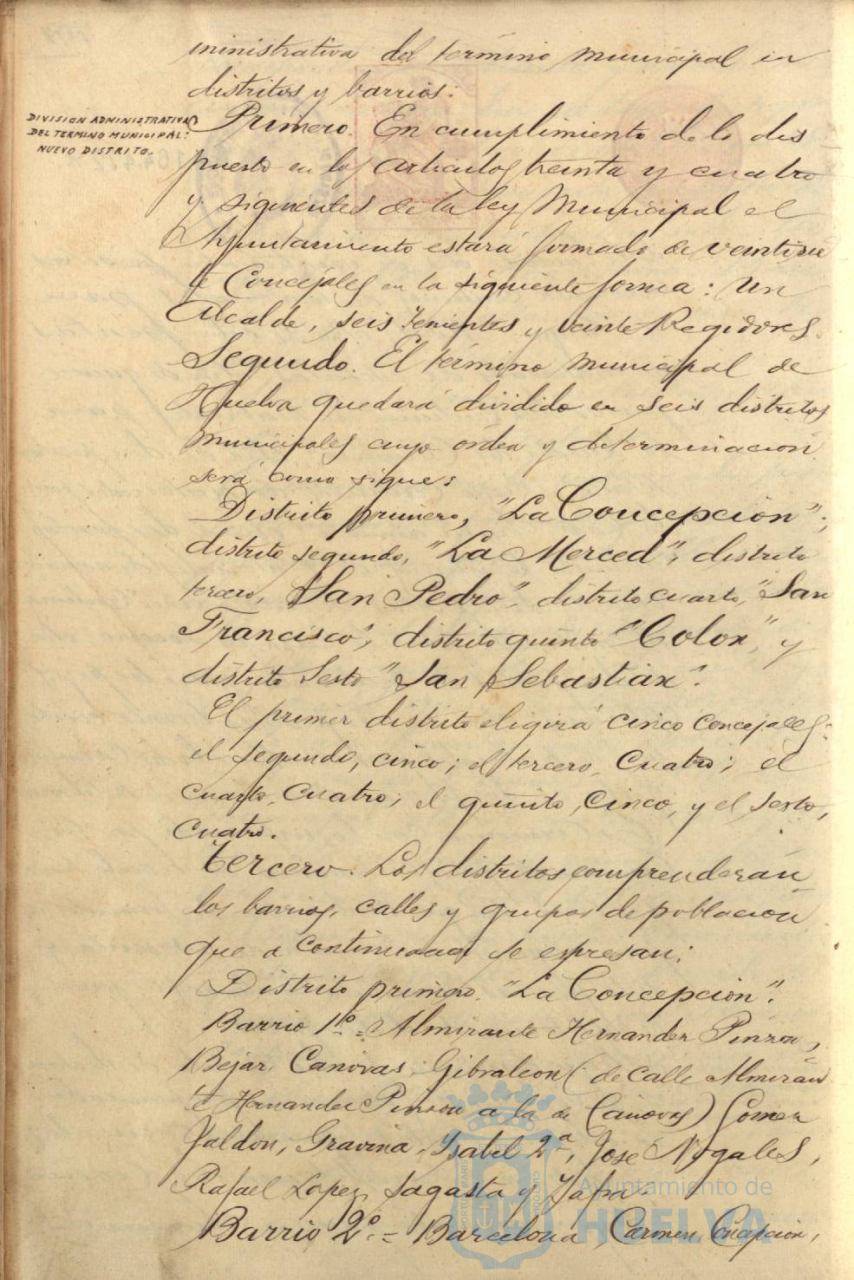 ministrativa del término municipal en
distritos y barrios:
DIVISION ADMINISTRATIVA
DEL TERMINO MUNICIPAL:
NUEVO DISTRITO.
Primero. En cumplimiento de lo dis
puesto en los artículos treinta y cuatro
y siguientes de la ley Municipal el
Ayuntamiento estará formado de veintisie
te Concejales en la siguiente forma: Un
Alcalde, seis Tenientes y veinte Regidores.
Segundo. El término municipal de
Huelva quedará dividido en seis distritos
municipales cuyo órden y determinación
será como sigue:
Distrito primero, "La Concepción";
distrito segundo, "La Merced"; distrito
tercero, "San Pedro"; distrito cuarto, "San
Francisco"; distrito quinto "Colon", y
distrito sesto "San Sebastian".
El primer distrito eligirá cinco concejales;
el segundo, cinco; el tercero, cuatro; el
cuarto, cuatro; el quinto, cinco, y el sexto,
cuatro.
Tercero. Los distritos comprenderán
los barrios, calles y grupos de población
que a continuación se espresan:
Distrito primero. "La Concepción".
Barrio 1º = Almirante Hernandez Pinzon,
Bejar, Canovas, Gibraleon (de calle Almiran
te Hernandez Pinzon a la de Canovas) Gomez
Jaldon, Gravina, Ysabel 2ª, Jose Nogales,
Rafael Lopez, Sagasta y
Barrio 2º = Barcelona, Carmen, Concepcion,
Ayuntamiento de
HUELVA